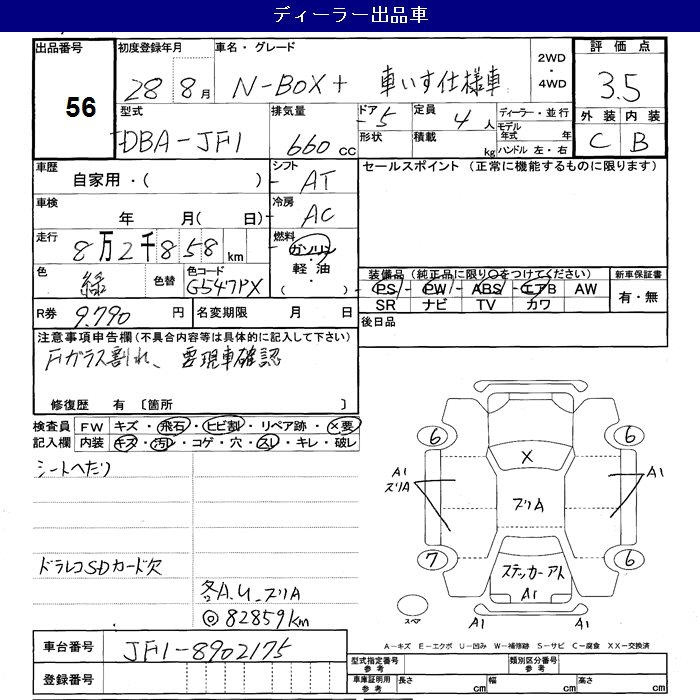 ディーラー出品車
出品番号
56
初度登録年月
28 8月
車名・グレード
N-BOX+ 車いす仕様車
2WD
・
4WD
評価点
3.5
外装 内装
C B
型式
DBA-JF1
排気量
660 cc
ドア
-5
形状
定員
4人
積載
kg
ディーラー・並行
モデル
年式 年
ハンドル 左・右
車歴
自家用・( )
シフト
AT
車検
年 月( 日)
冷房
AC
走行
8万2千858 km
燃料
ガソリン
・
軽油
( )
色
緑
色替
色コード
G547PX
R券 9.790 円
名変期限 月 日
セールスポイント (正常に機能するものに限ります)
装備品(純正品に限り○をつけてください)
PS PW ABS エアB AW
SR ナビ TV カワ
新車保証書
有・無
後日品
注意事項申告欄(不具合内容等は具体的に記入して下さい)
Fガラス割れ、要現車確認
修復歴 有 〔箇所 〕
検査員
記入欄
FW キズ・飛石・ヒビ割・リペア跡・X要
内装 キズ・汚レ・コゲ・穴・スレ・キレ・破レ
シートへたり
ドラレコSDカード欠
各A.U.ズリA
◎82859km
6
6
7
6
X
A1
ズリA
ズリA
A1
ステッカーアト
A1
A1
A1
スペア
A-キズ E-エクボ U-凹み W-補修跡 S-サビ C-腐食 XX-交換済
車台番号
JF1-8902175
登録番号
型式指定番号
参考
類別区分番号
参考
車庫証明用
参考
長さ cm
幅 cm
高さ cm